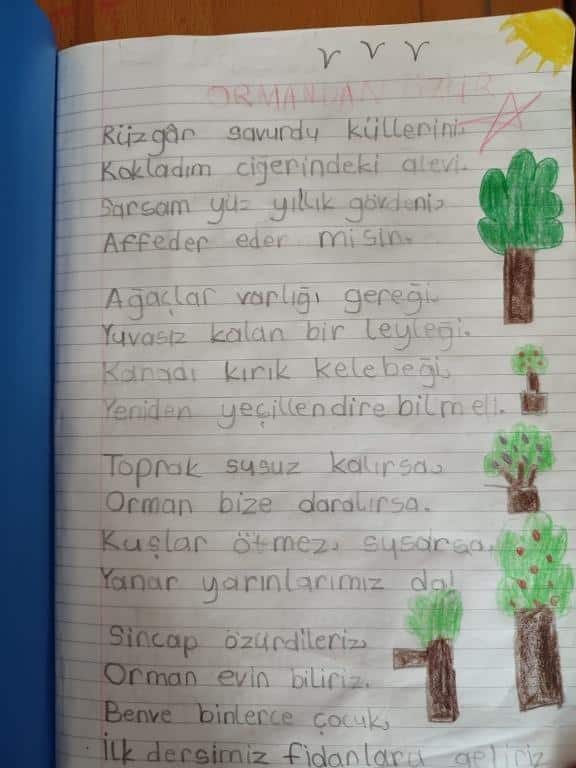 ORMANDAN ÖZÜR
Rüzgâr savurdu küllerini,
Kokladım ciğerindeki alevi.
Sarsam yüz yıllık gövdeni,
Affeder eder misin.
Ağaçlar varlığı gereği,
Yuvasız kalan bir leyleği.
Kanadı kırık kelebeği,
Yeniden yeçillendire bilmeli.
Toprak susuz kalırsa,
Orman bize daralırsa.
Kuşlar ötmez, susarsa,
Yanar yarınlarımız da!
Sincap özürdileriz,
Orman evin biliriz.
Benve binlerce çocuk,
İlk dersimiz fidanlara geliriz